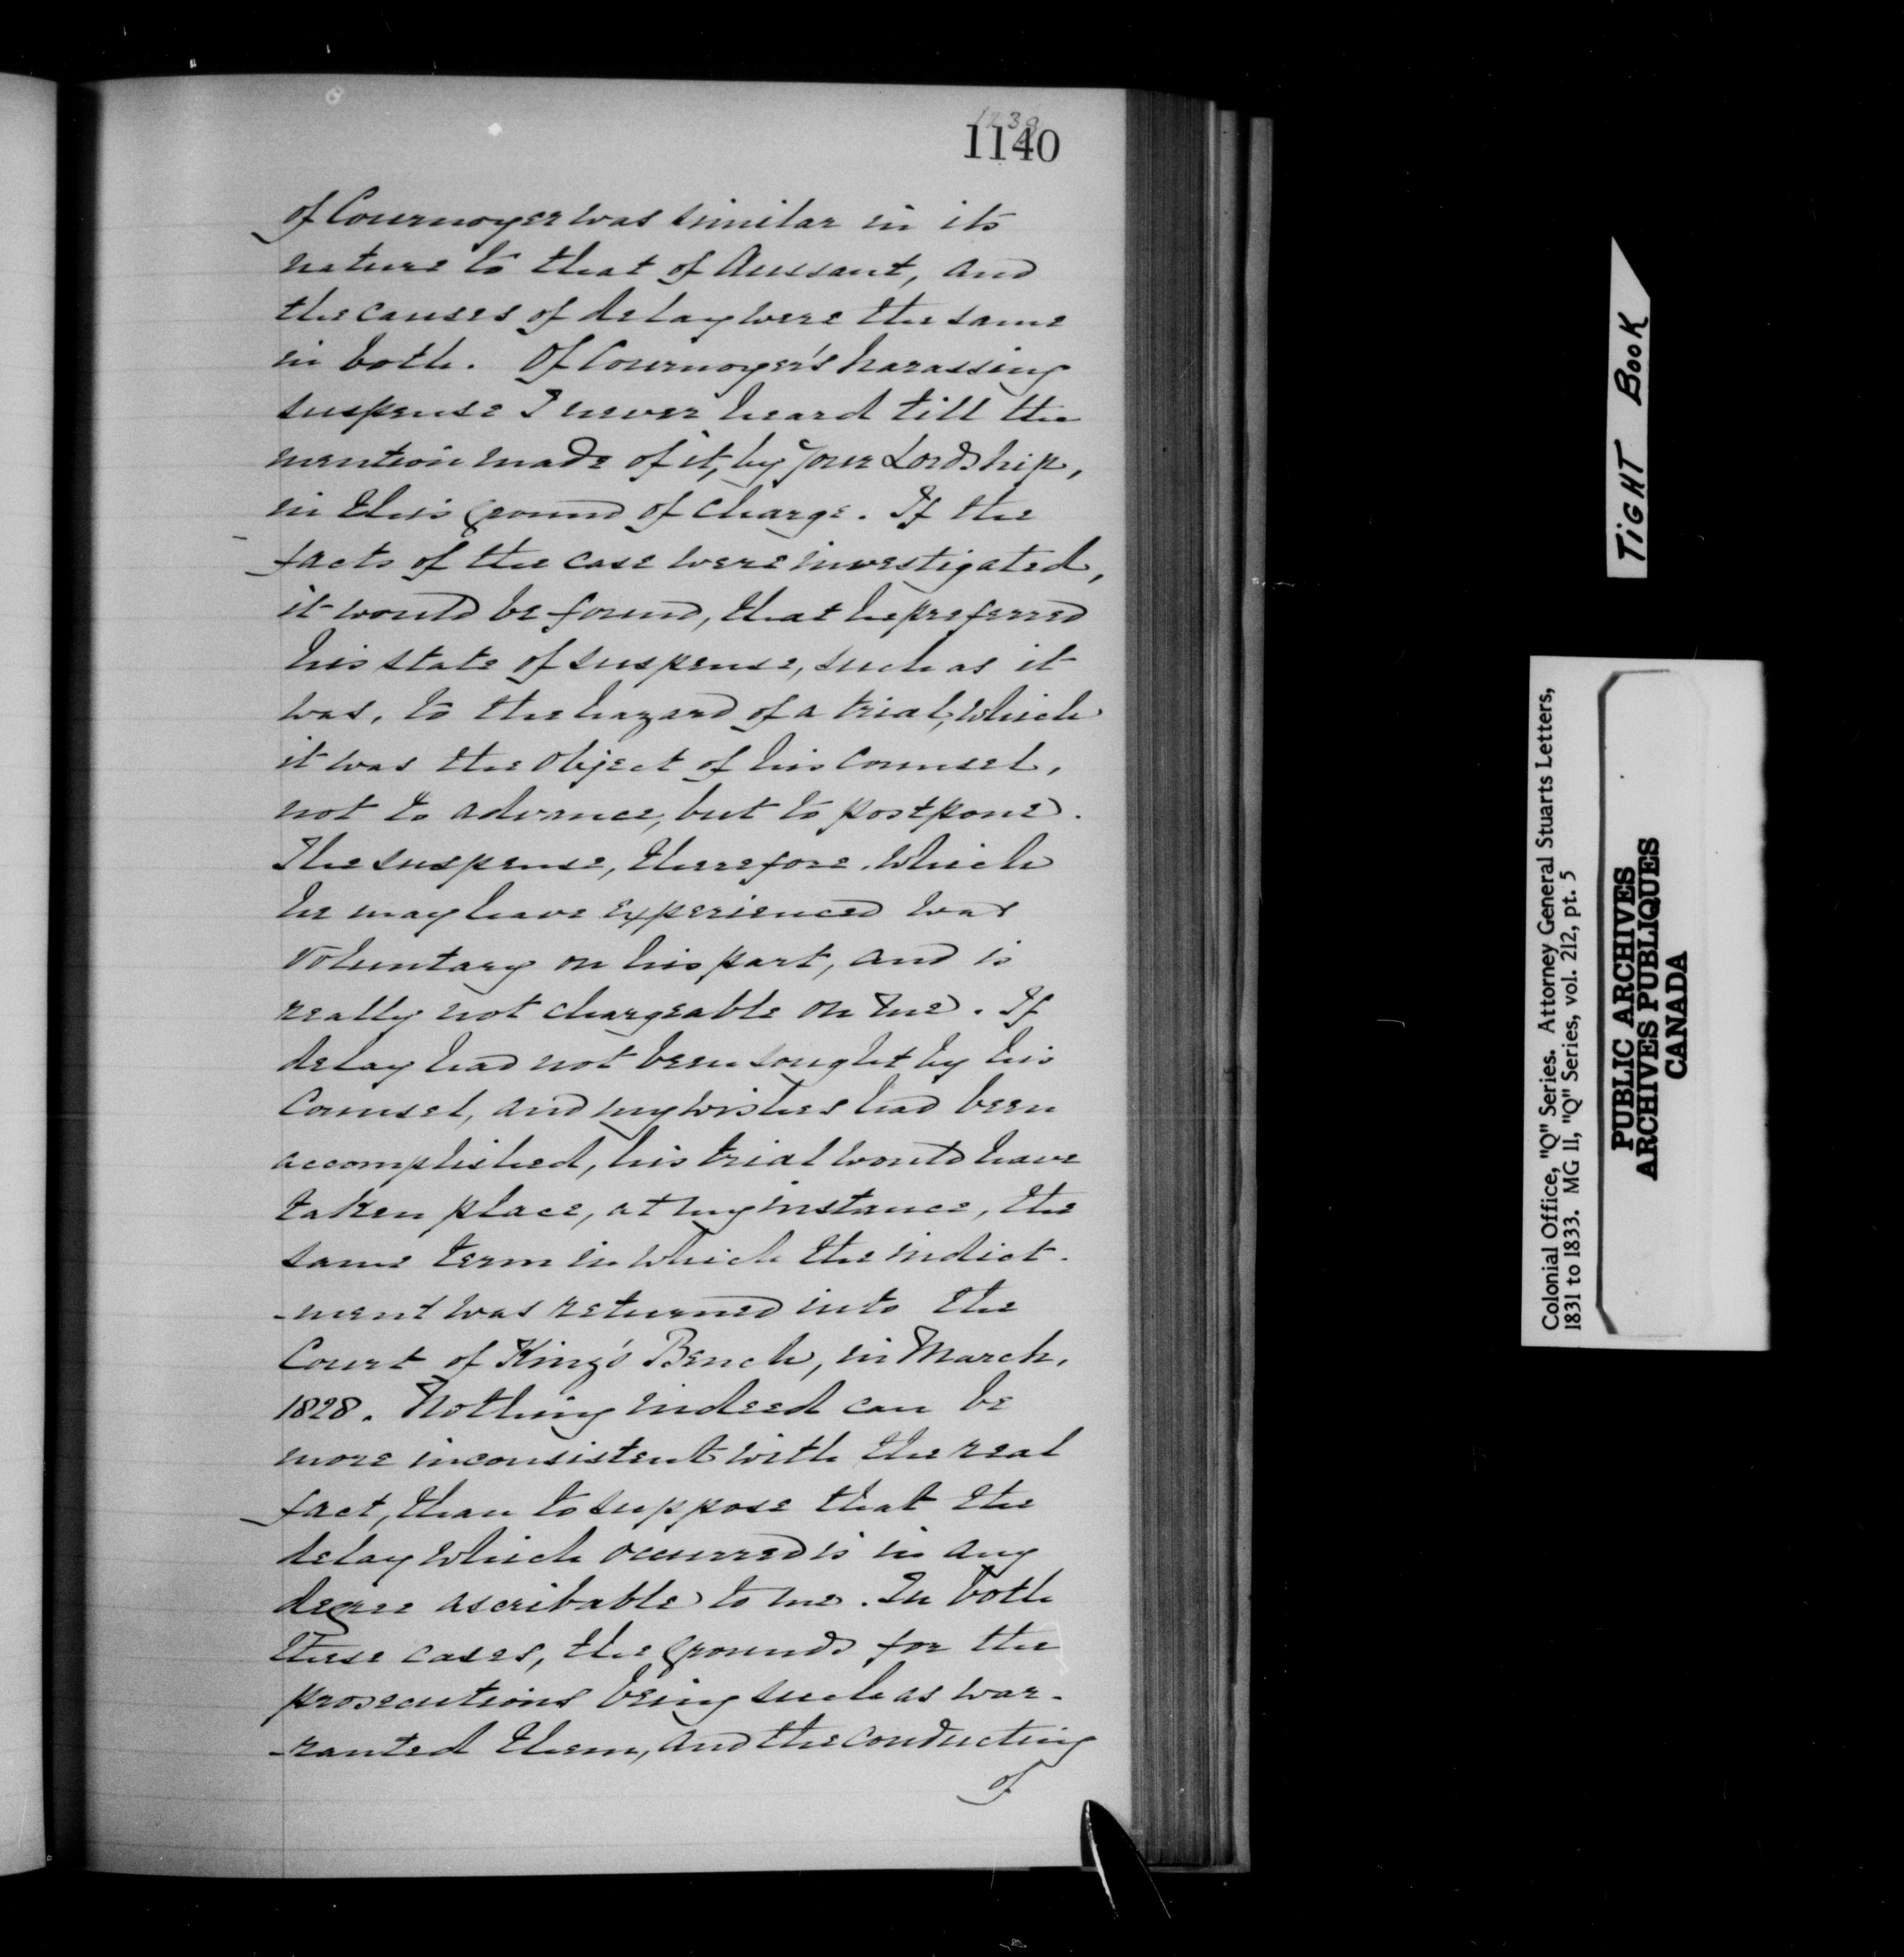 1239
1140
of Cournoyer was similar in its
nature to that of Aussant, and
the causes of delay were the same
in both. Of Cournoyer's harassing
suspense I never heard till the
mention made of it, by your Lordship,
in this ground of charge. If the
facts of the case were investigated,
it would be found, that he preferred
his state of suspense, such as it
was, to the hazard of a trial, which
it was the object of his Counsel,
not to advance, but to postpone.
The suspense, therefore, which
he may have experienced was
voluntary on his part, and is
really not chargeable on me. If
delay had not been sought by his
Counsel, and my wishes had been
accomplished, his trial would have
taken place, at my instance, the
same term in which the indict-
-ment was returned into the
Court of King's Bench, in March,
1828. Nothing indeed can be
more inconsistent with the real
fact, than to suppose that the
delay which occurred is in any
degree ascribable to me. In both
these cases, the grounds for the
prosecutions being such as war-
-ranted them, and the conducting
of
TIGHT BOOK
Colonial Office, "Q" Series. Attorney General Stuarts Letters,
1831 to 1833. MG 11, "Q" Series, vol. 212, pt. 5
PUBLIC ARCHIVES
ARCHIVES PUBLIQUES
CANADA